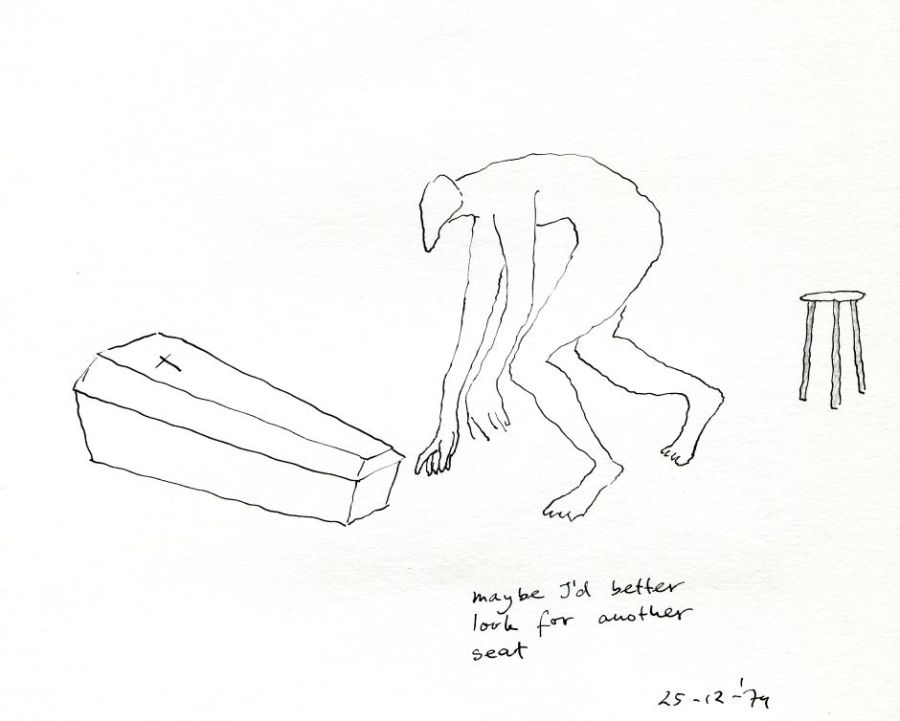 maybe I'd better
look for another
seat
25-12-'74